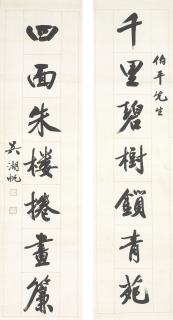 千里碧樹鎖青苑
伯平先生
四面朱楼捲畫簾
吳湖帆